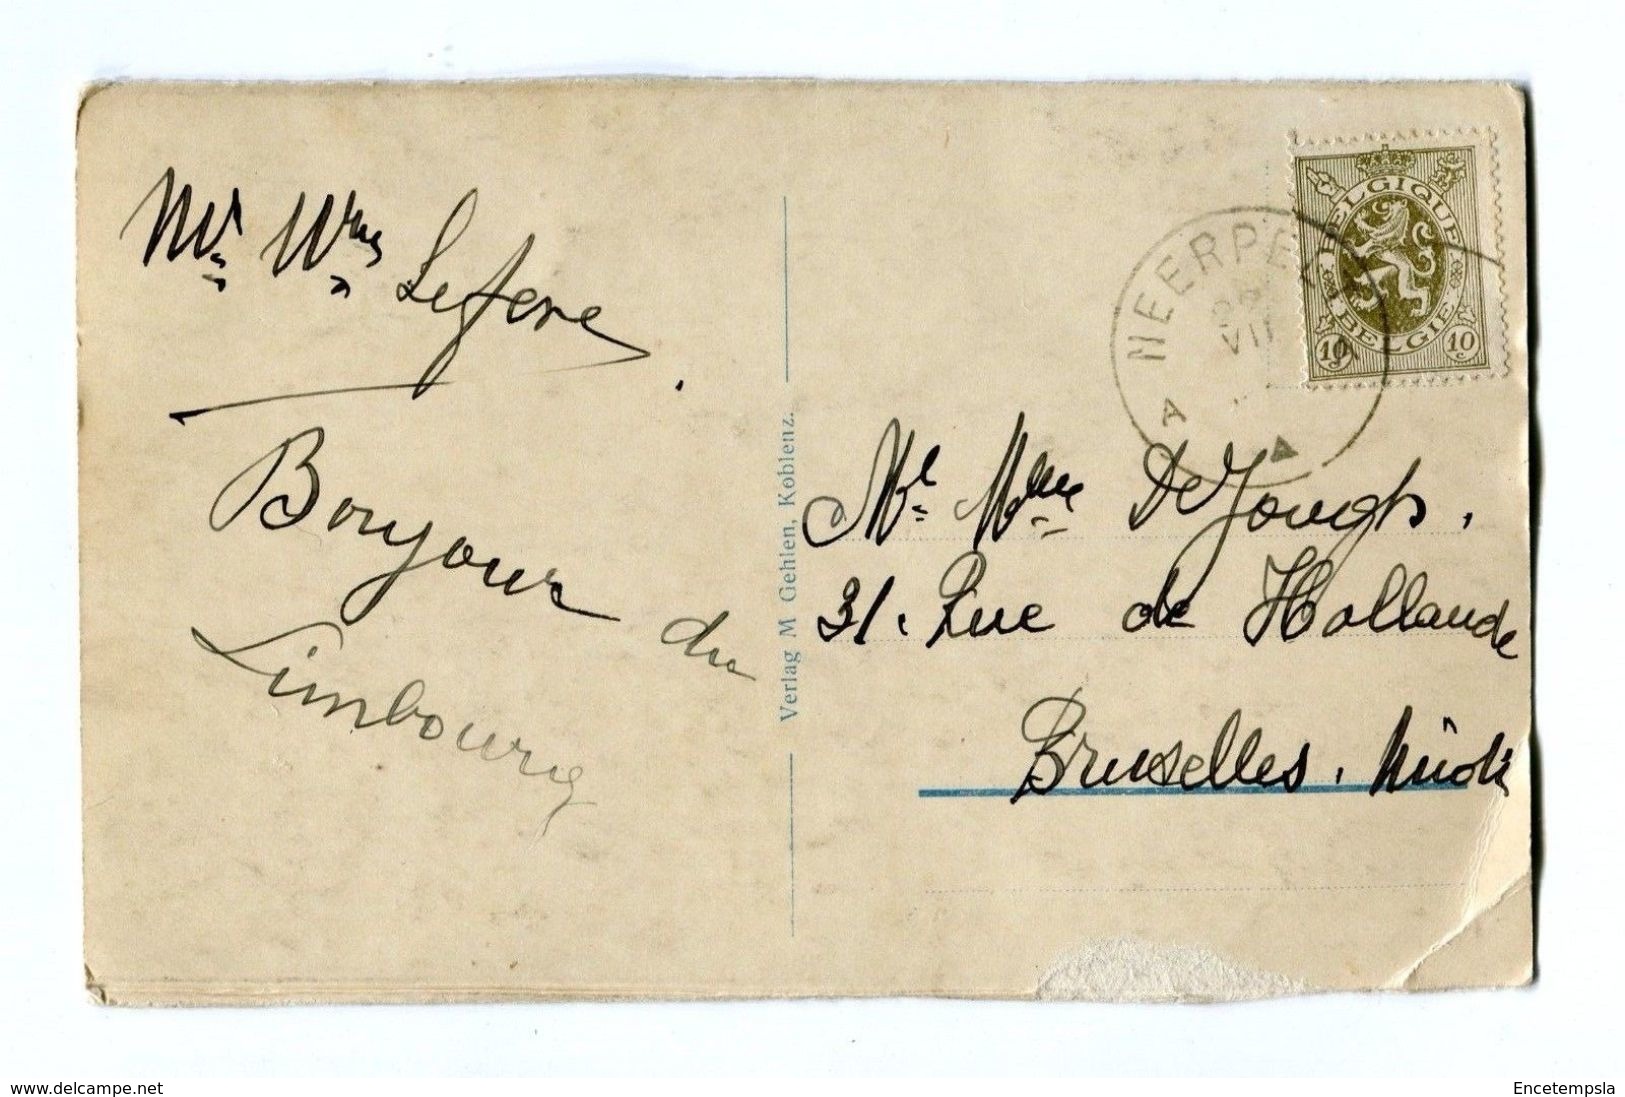 Mr. Mme Lefevre.
Bonjour du
Limbourg
Verlag M Gehlen, Koblenz.
NEERPELT
VII
A
BELGIQUE
BELGIË
10c 10c
Mr. Mme De Jongh.
31. Rue de Hollande
Bruxelles. Midi
www.delcampe.net
Encetempsla